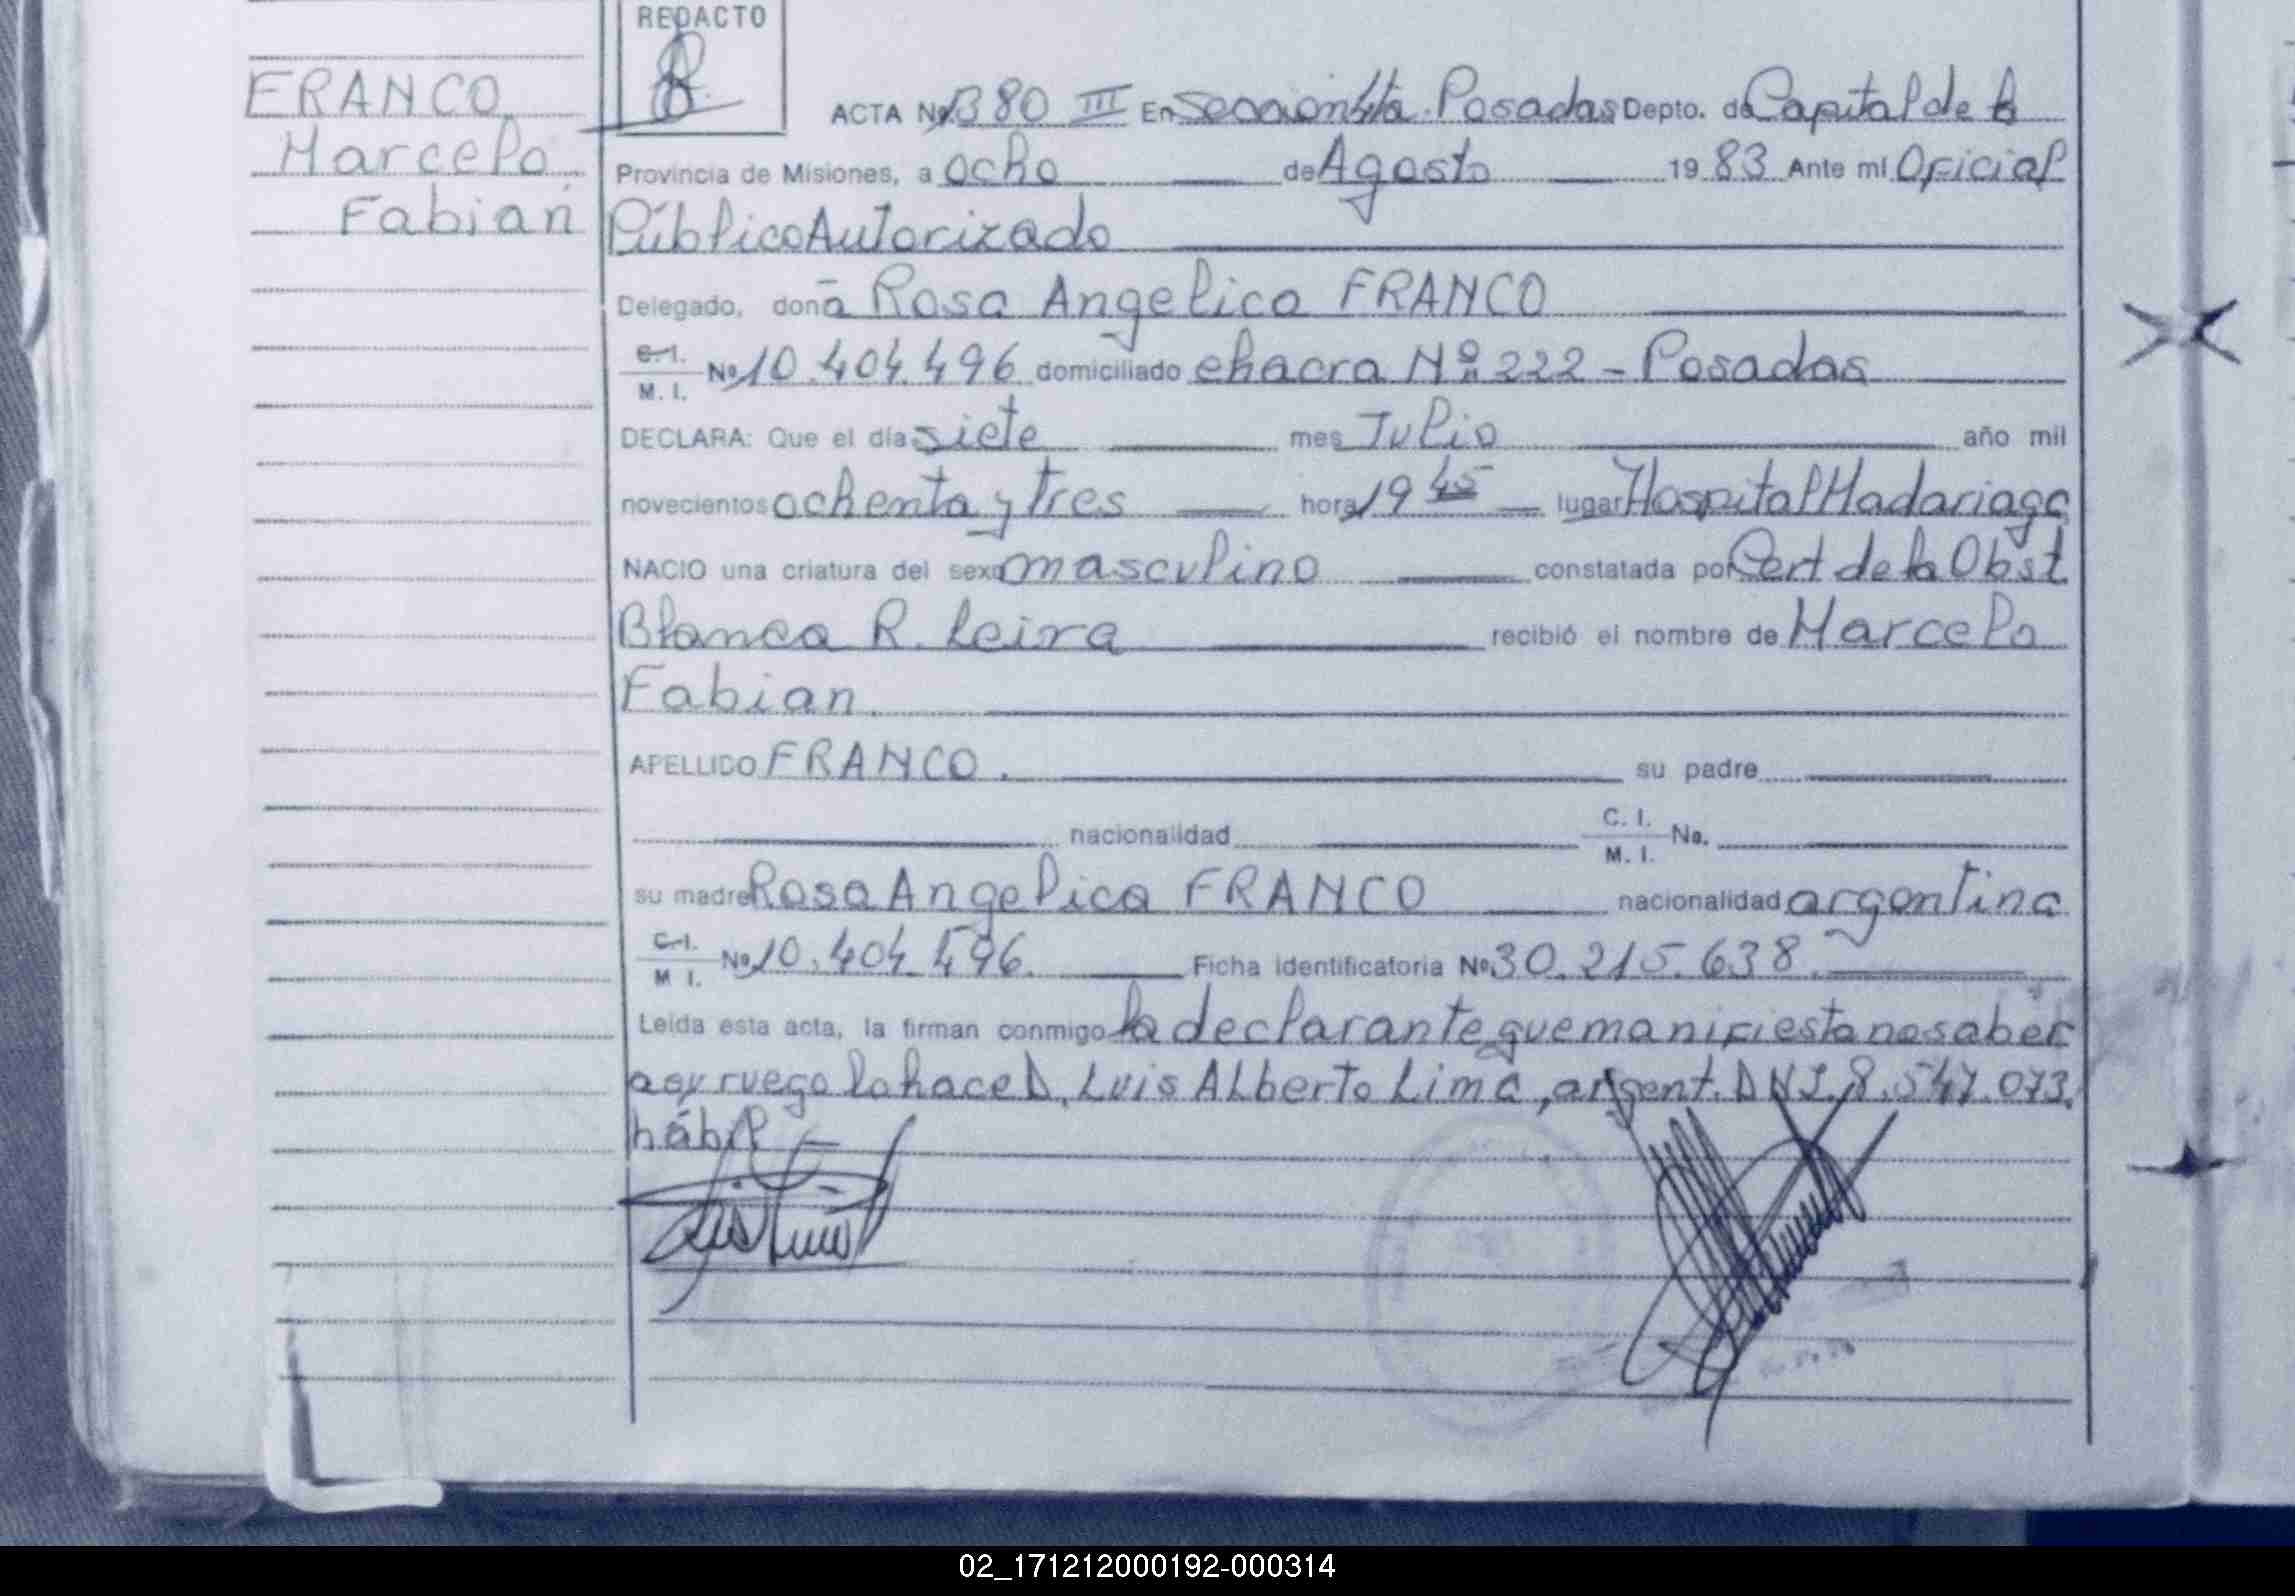 REDACTO
FRANCO
Marcelo
Fabian
ACTA Nº 380 III En Sección 4ta. Posadas Depto. de Capital de la
Provincia de Misiones, a ocho de Agosto 1983 Ante mi Oficial
Público Autorizado
Delegado, doña Rosa Angelica FRANCO
C.I.
M. I. Nº 10.404.496 domiciliado chacra Nº 222 - Posadas
DECLARA: Que el día siete mes Julio año mil
novecientos ochenta y tres hora 19 45 lugar Hospital Madariaga
NACIO una criatura del sexo masculino constatada por Cert de la Obst
Blanca R. Leiva recibió el nombre de Marcelo
Fabian.
APELLIDO FRANCO. su padre
nacionalidad C. I. No.
M. I.
su madre Rosa Angelica FRANCO nacionalidad argentina
C.I.
M I. Nº 10.404.496. Ficha identificatoria Nº 30.215.638.
Leída esta acta, la firman conmigo la declarante que manifiesta no saber
a sy ruego lo hace D. Luis Alberto Lima, argent. DNI. 8.547.073.
hábil
02_171212000192-000314